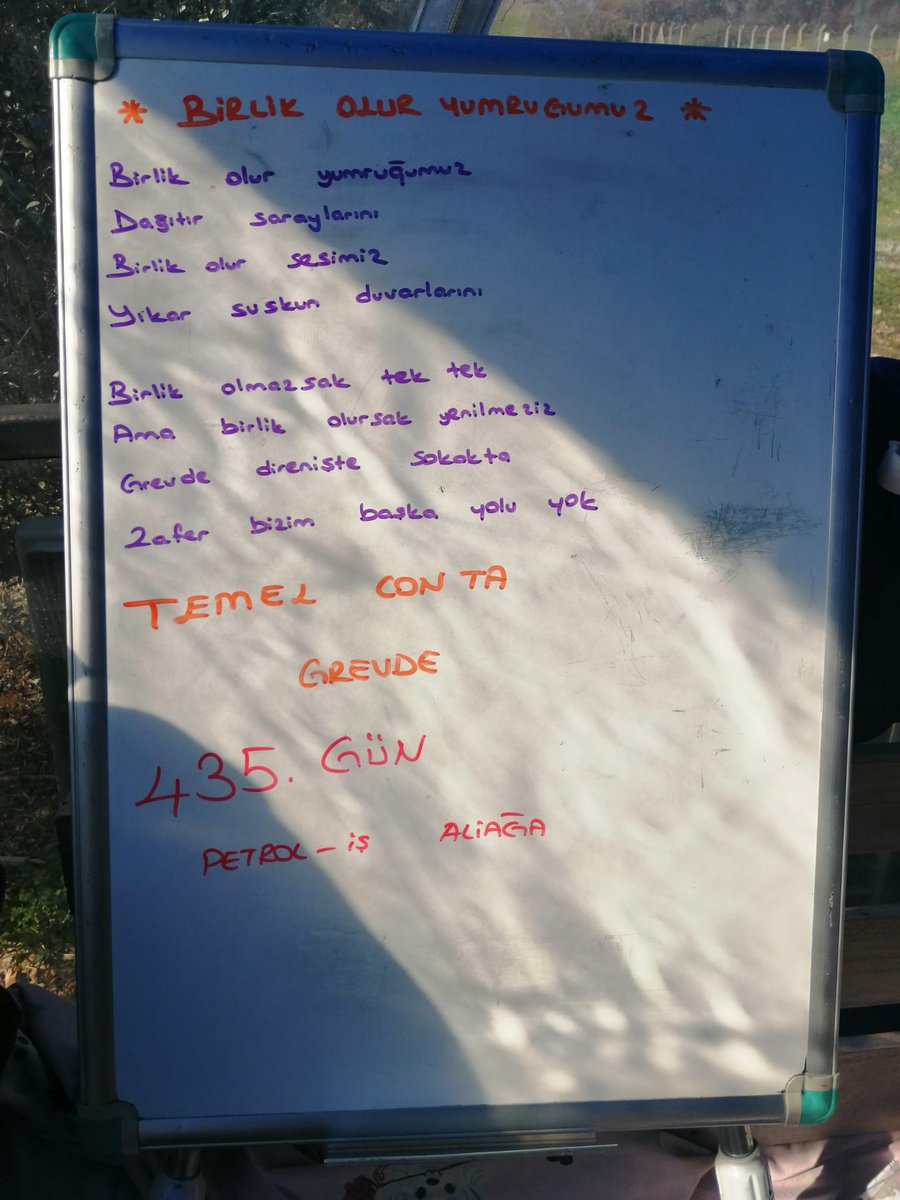 * BİRLİK OLUR YUMRUGUMUZ *
Birlik olur yumruğumuz
Dağıtır saraylarını
Birlik olur sesimiz
Yikar suskun duvarlarını
Birlik olmazsak tek tek
Ama birlik olursak yenilmeziz
Grevde direnişte sokakta
Zafer bizim başka yolu yok
TEMEL CONTA
GREVDE
435. GÜN
PETROL-İŞ ALİAĞA